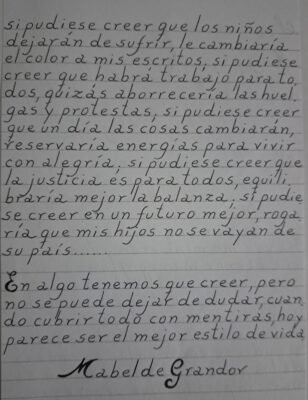 si pudiese creer que los niños
dejarán de sufrir, le cambiaría
el color a mis escritos, si pudiese
creer que habrá trabajo para to
dos, quizás aborrecería las huel
gas y protestas, si pudiese creer
que un día las cosas cambiarán,
reservaría energías para vivir
con alegría, si pudiese creer que
la justicia es para todos, equili
braría mejor la balanza, si pudie
se creer en un futuro mejor, roga
ría que mis hijos no se vayan de
su país......
En algo tenemos que creer, pero
no se puede dejar de dudar, cuan
do cubrir todo con mentiras, hoy
parece ser el mejor estilo de vida
Mabel de Grandov